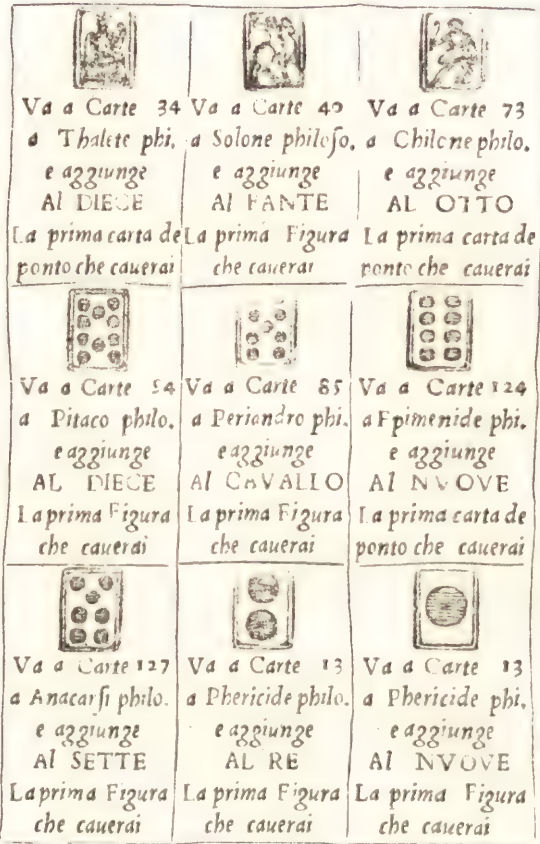 Va a Carte 34
a Thalete phi.
e aggiunge
Al DIECE
La prima carta de
ponto che cauerai
Va a Carte 40
a Solone philoso.
e aggiunge
Al FANTE
La prima Figura
che cauerai
Va a Carte 73
a Chilone philo.
e aggiunge
AL OTTO
La prima carta de
ponto che cauerai
Va a Carte 54
a Pitaco philo.
e aggiunge
AL DIECE
La prima Figura
che cauerai
Va a Carte 85
a Periandro phi.
e aggiunge
Al CAVALLO
La prima Figura
che cauerai
Va a Carte 124
a Epimenide phi.
e aggiunge
Al NVOVE
La prima carta de
ponto che cauerai
Va a Carte 127
a Anacarsi philo.
e aggiunge
Al SETTE
La prima Figura
che cauerai
Va a Carte 13
a Phericide philo.
e aggiunge
AL RE
La prima Figura
che cauerai
Va a Carte 13
a Phericide phi.
e aggiunge
Al NVOVE
La prima Figura
che cauerai